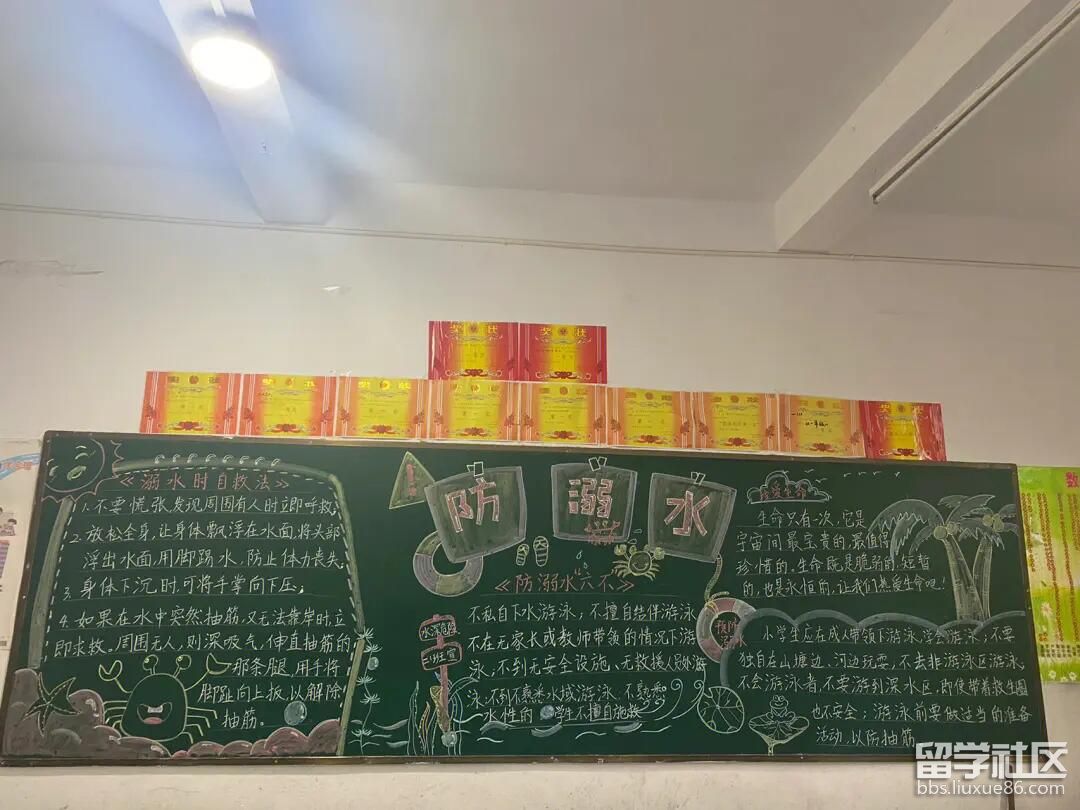 奖状
奖状
《溺水时自救法》
1.不要慌张发现周围有人时立即呼救;
2.放松全身,让身体飘浮在水面,将头部
浮出水面,用脚踢水,防止体力丧失;
3.身体下沉时,可将手掌向下压;
4.如果在水中突然抽筋,又无法靠岸时,立
即求救。周围无人,则深吸气,伸直抽筋的
那条腿,用手将
脚趾向上扳,以解除
抽筋。
防溺水
《防溺水六不》
不私自下水游泳,不擅自结伴游泳
不在无家长或教师带领的情况下游
泳,不到无安全设施、无救援人员水域游
泳,不到不熟悉水域游泳,不熟悉
水性的学生不擅自施救
水深危险
珍爱生命
生命只有一次,它是
宇宙间最宝贵的,最值得
珍惜的。生命既是脆弱的,短暂
的,也是永恒的,让我们热爱生命吧!
预防
小学生应在成人带领下游泳,学会游泳,不要
独自在山塘边、河边玩耍,不去非游泳区游泳,
不会游泳者,不要游到深水区,即使带着救生圈
也不安全;游泳前要做适当的准备
活动,以防抽筋
数
留学社区
bbs.liuxue86.com